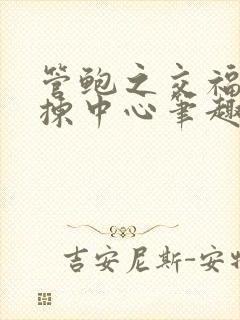 管鲍之交福
拣中心笔趣
吉安尼斯-安特